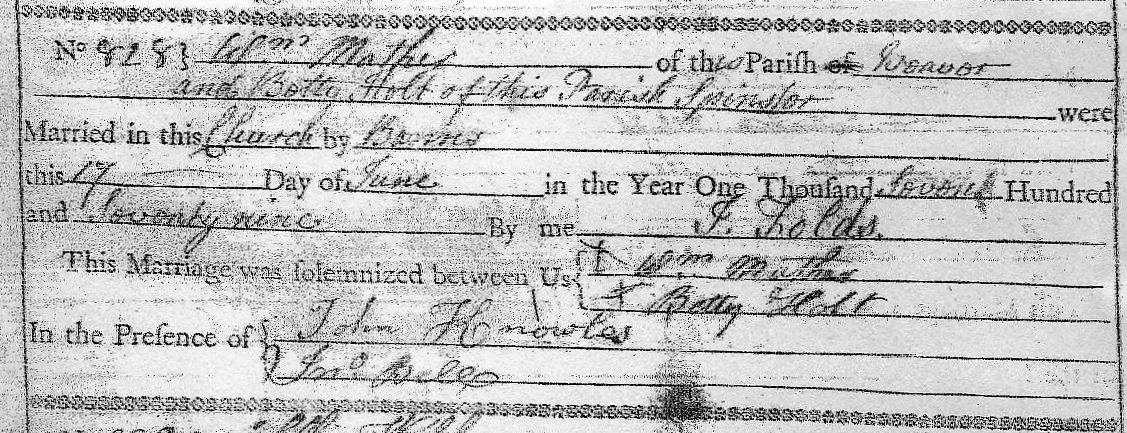 No 8283 } Wm Mather of this Parish of Weavor
and Betty Holt of this Parish Spinster were
Married in this Church by Banns
this 17 Day of June in the Year One Thousand Seven Hundred
and Seventy nine By me J. Folds.
This Marriage was solemnized between Us { Wm Mather
X Betty Holt
In the Presence of { John Knowles
Jno Bell